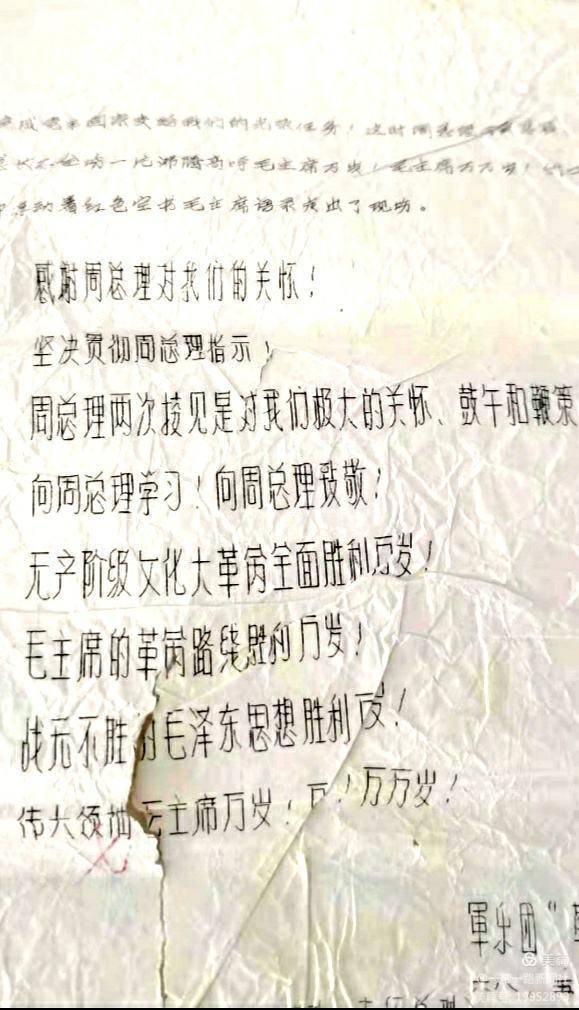 完成毛主席交给我们的光荣任务！这时周总理
全场一片沸腾高呼毛主席万岁！毛主席万万岁！
动着红色宝书毛主席语录走出了现场。
感谢周总理对我们的关怀！
坚决贯彻周总理指示！
周总理两次接见是对我们极大的关怀、鼓午和鞭策
向周总理学习！向周总理致敬！
无产阶级文化大革命全面胜利万岁！
毛主席的革命路线胜利万岁！
战无不胜的毛泽东思想胜利万岁！
伟大领袖毛主席万岁！万！万万岁！
軍乐团“
六八 五
美篇